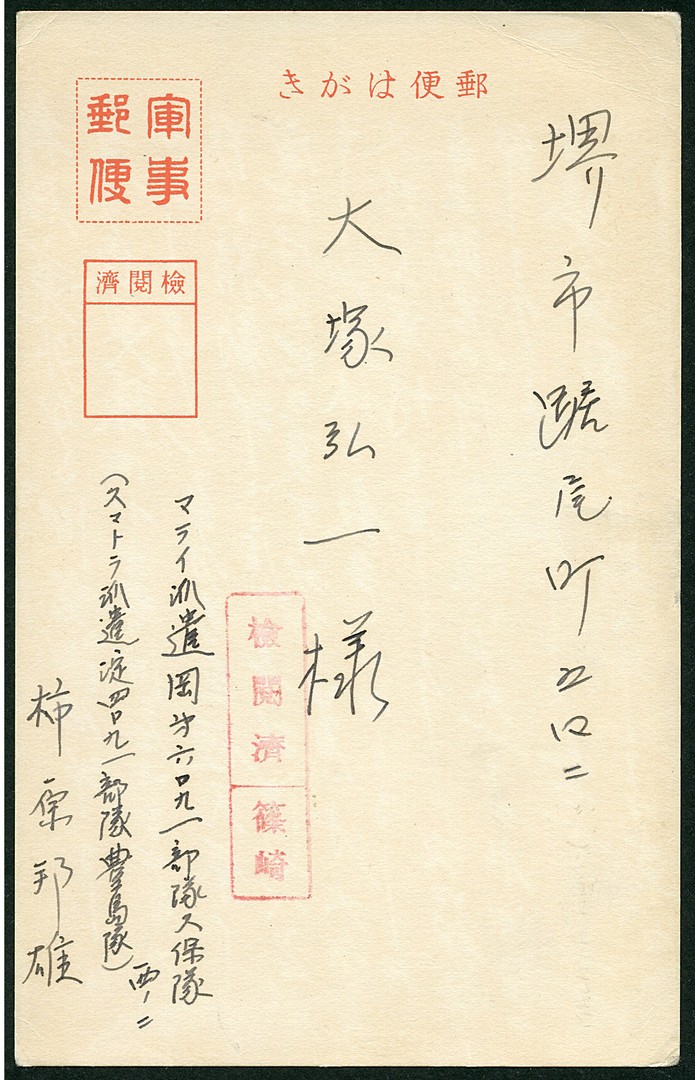 郵便はがき
軍事郵便
檢閲濟
堺市踞尾町五口二
大塚弘一様
檢閲濟
篠崎
マライ派遣岡第六口九一部隊久保隊
(スマトラ派遣淀四口九一部隊豊島隊)
西ノ二
柿原邦雄